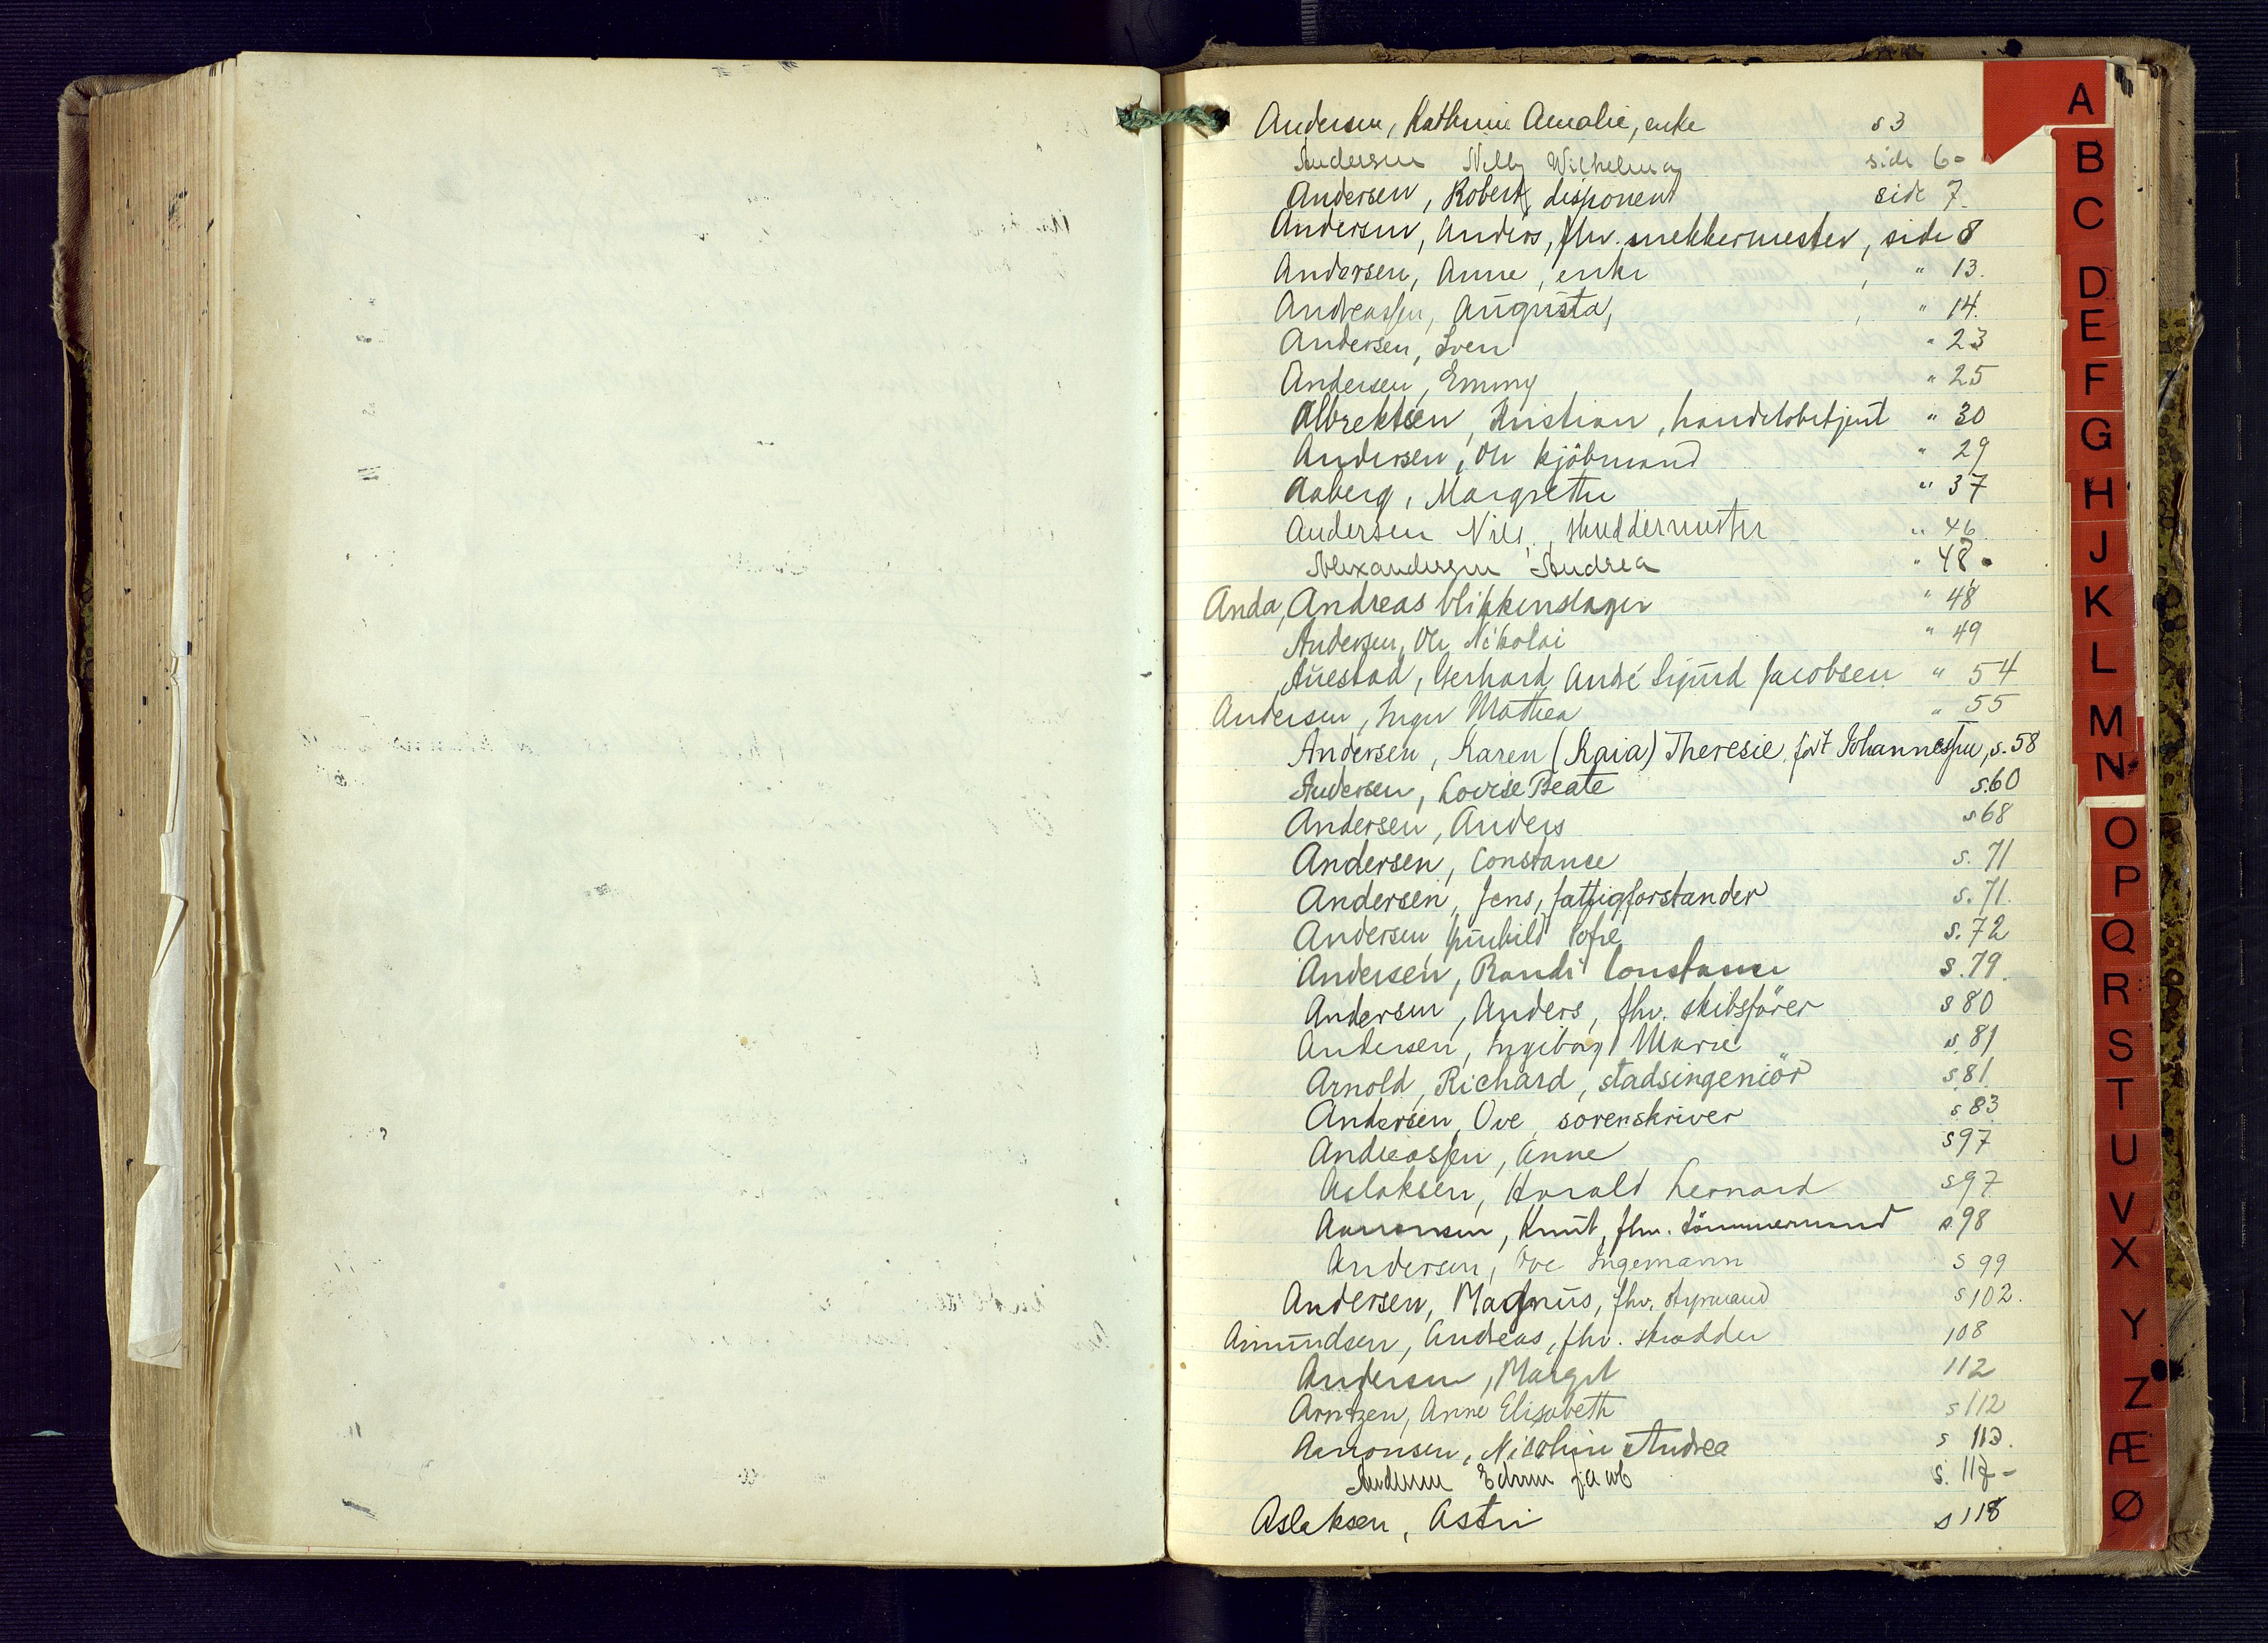 Andersen, Kathrine Amalie, enke s 3
Andersen Nelly Wilhelma side 6-
Andersen, Robert, disponent side 7.
Andersen, Anders, fhv. snekkermester, side 8
Andersen, Anne, enke , " 13.
Andreassen, Augusta, , " 14.
Andersen, Sven " 23
Andersen, Emmy " 25
Albrektsen, Kristian, handelsbetjent " 30
Andersen, Ole kjöbmand " 29
Aaberg, Margrethe " 37
Andersen Nils, skreddermester " 46
Alexandersen Andrea " 48
Anda, Andreas blikkenslager " 48
Andersen, Ole Nikolai " 49
Auestad, Gerhard André Sigurd Jacobsen " 54
Andersen, Inger Mathea " 55
Andersen, Karen (Kaia) Theresie født Johannessen, s. 58
Andersen, Lovise Beate s.60
Andersen, Anders s 68
Andersen, Constance s. 71
Andersen, Jens, fattigforstander s. 71.
Andersen, Gunhild Sofie s. 72
Andersen, Randi Constance s. 79.
Andersen, Anders, fhv. skibsförer s 80
Andersen, Ingeborg Marie s. 81
Arnold, Richard, stadsingeniör s. 81
Andersen, Ove, sorenskriver s 83
Andreassen, Anne s 97
Aslaksen, Harald Leonard s 97
Aanonsen, Knut, fhv. tömmermand s. 98
Andersen, Ove Ingemann s 99
Andersen, Magnus, fhv. styrmand s 102.
Amundsen, Andreas, fhv. skrædder 108
Andersen, Margit 112
Arntzen, Anne Elisabeth s 112
Aanonsen, Nicoline Andrea s 113.
Andersen Edvin Jacob s. 117-
Aslaksen, Astri s 118
A
B
C
D
E
F
G
H
J
K
L
M
N
O
P
Q
R
S
T
U
V
X
Y
Z
Æ
Ø